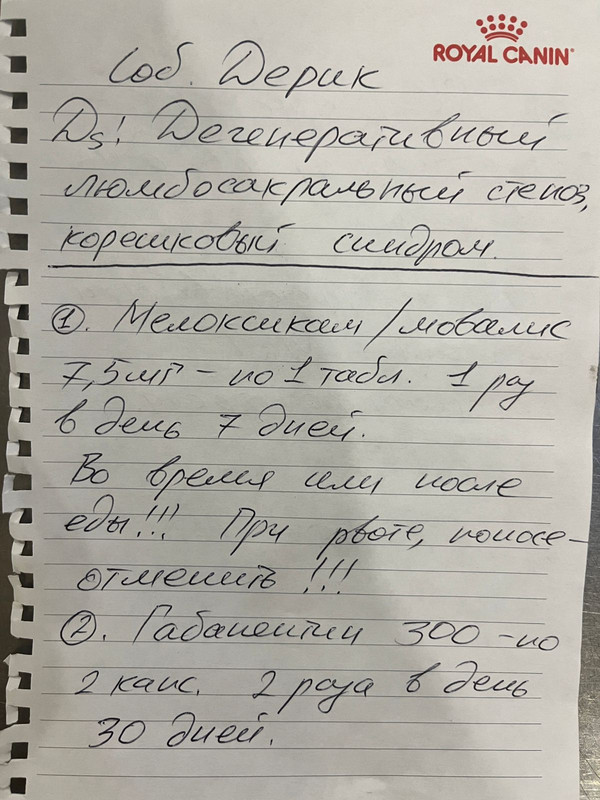 ROYAL CANIN
Соб. Дерик
Ds! Дегенеративный
люмбосакральный стеноз,
корешковый синдром.
①. Мелоксикам/мовалис
7,5мг - по 1 табл. 1 раз
в день 7 дней.
Во время или после
еды!!! При рвоте, поносе-
отменить!!!
②. Габапентин 300 -по
2 капс. 2 раза в день
30 дней.